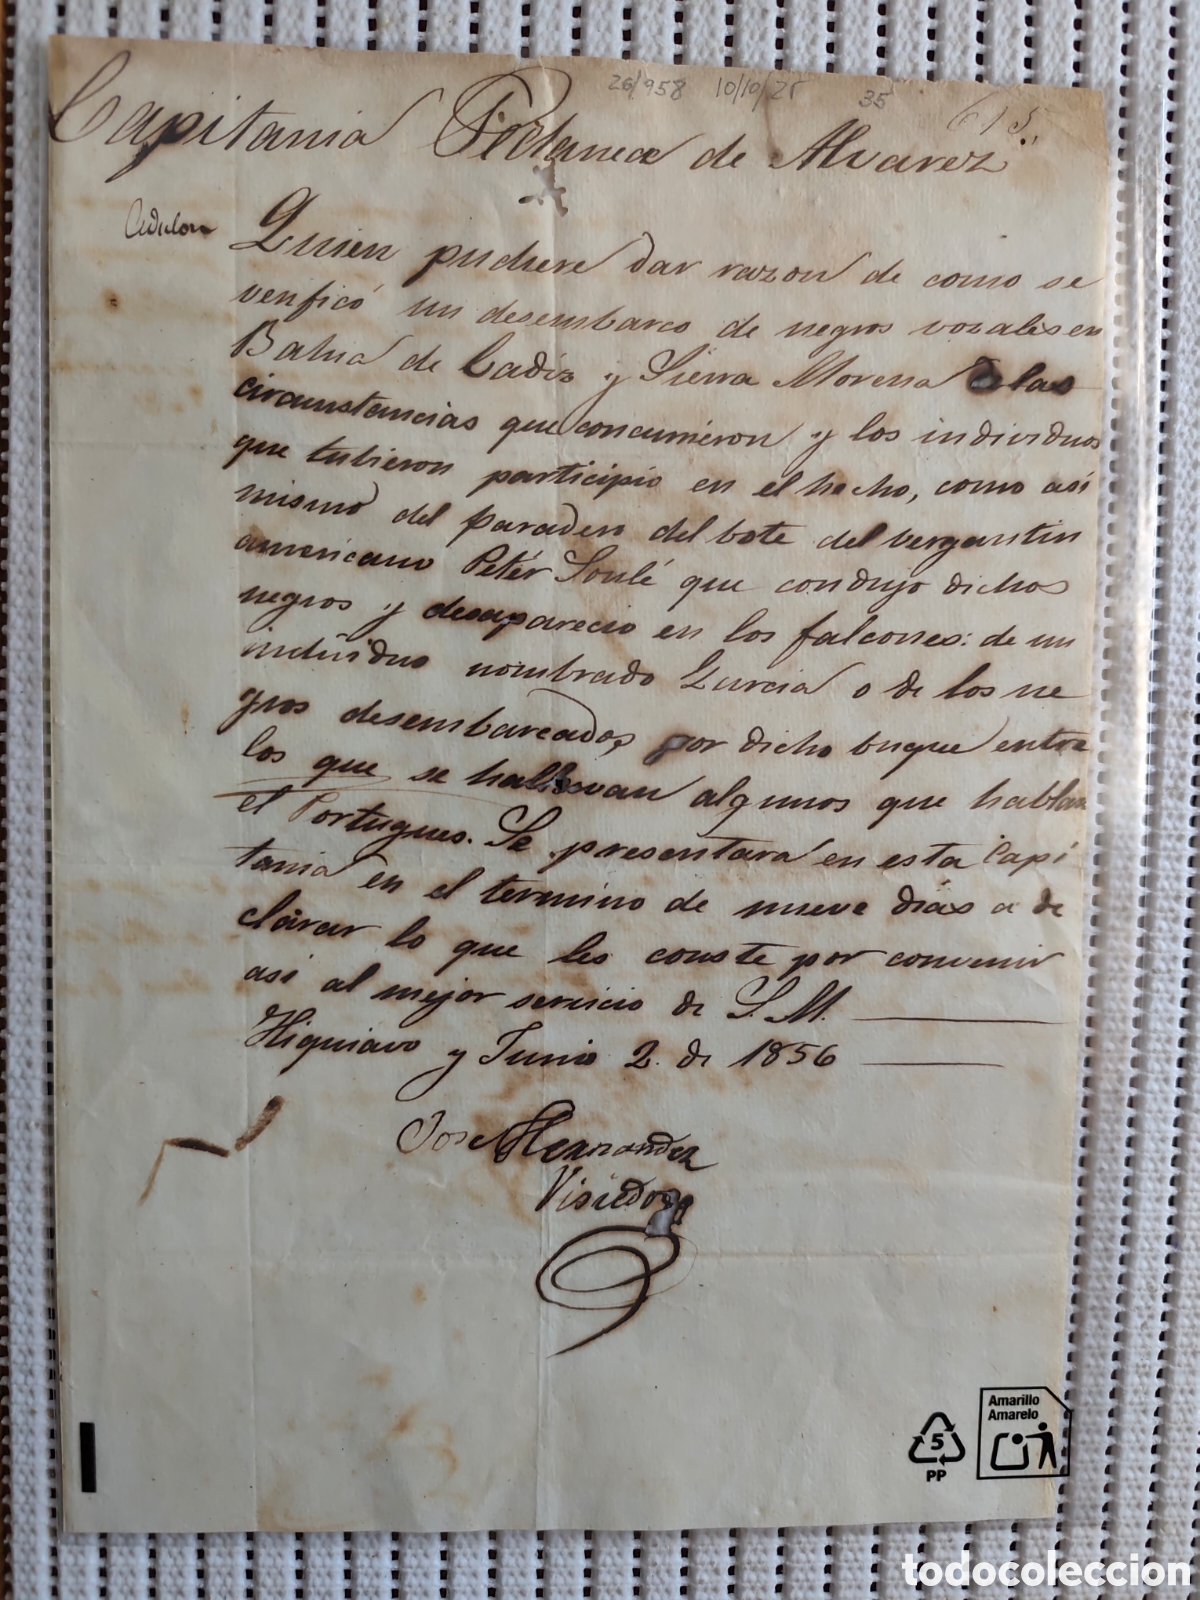 26/958 10/10/25 35 615.,
Capitania Pedanea de Alvarez
Cedulon
Quien pudiere dar razon de como se
verificó un desembarco de negros vozales en
Bahia de Cadiz y Sierra Morena de las
circunstancias que concurrieron y los individuos
que tubieron participio en el hecho, como asi
mismo del paradero del bote del vergantin
americano Peter Soulé que condujo dichos
negros y desaparecio en los falcones: de un
individuo nombrado Garcia o de los ne
gros desembarcados por dicho buque entre
los que se hallavan algunos que hablan
el Portugues. Se presentara en esta Capi
tania en el termino de nueve dias a de
clarar lo que les conste por convenir
asi al mejor servicio de S. M.
Hiquiavo y Junio 2 de 1856
Jose Hernandez
Visiedo
Amarillo
Amarelo
5
PP
todocoleccion